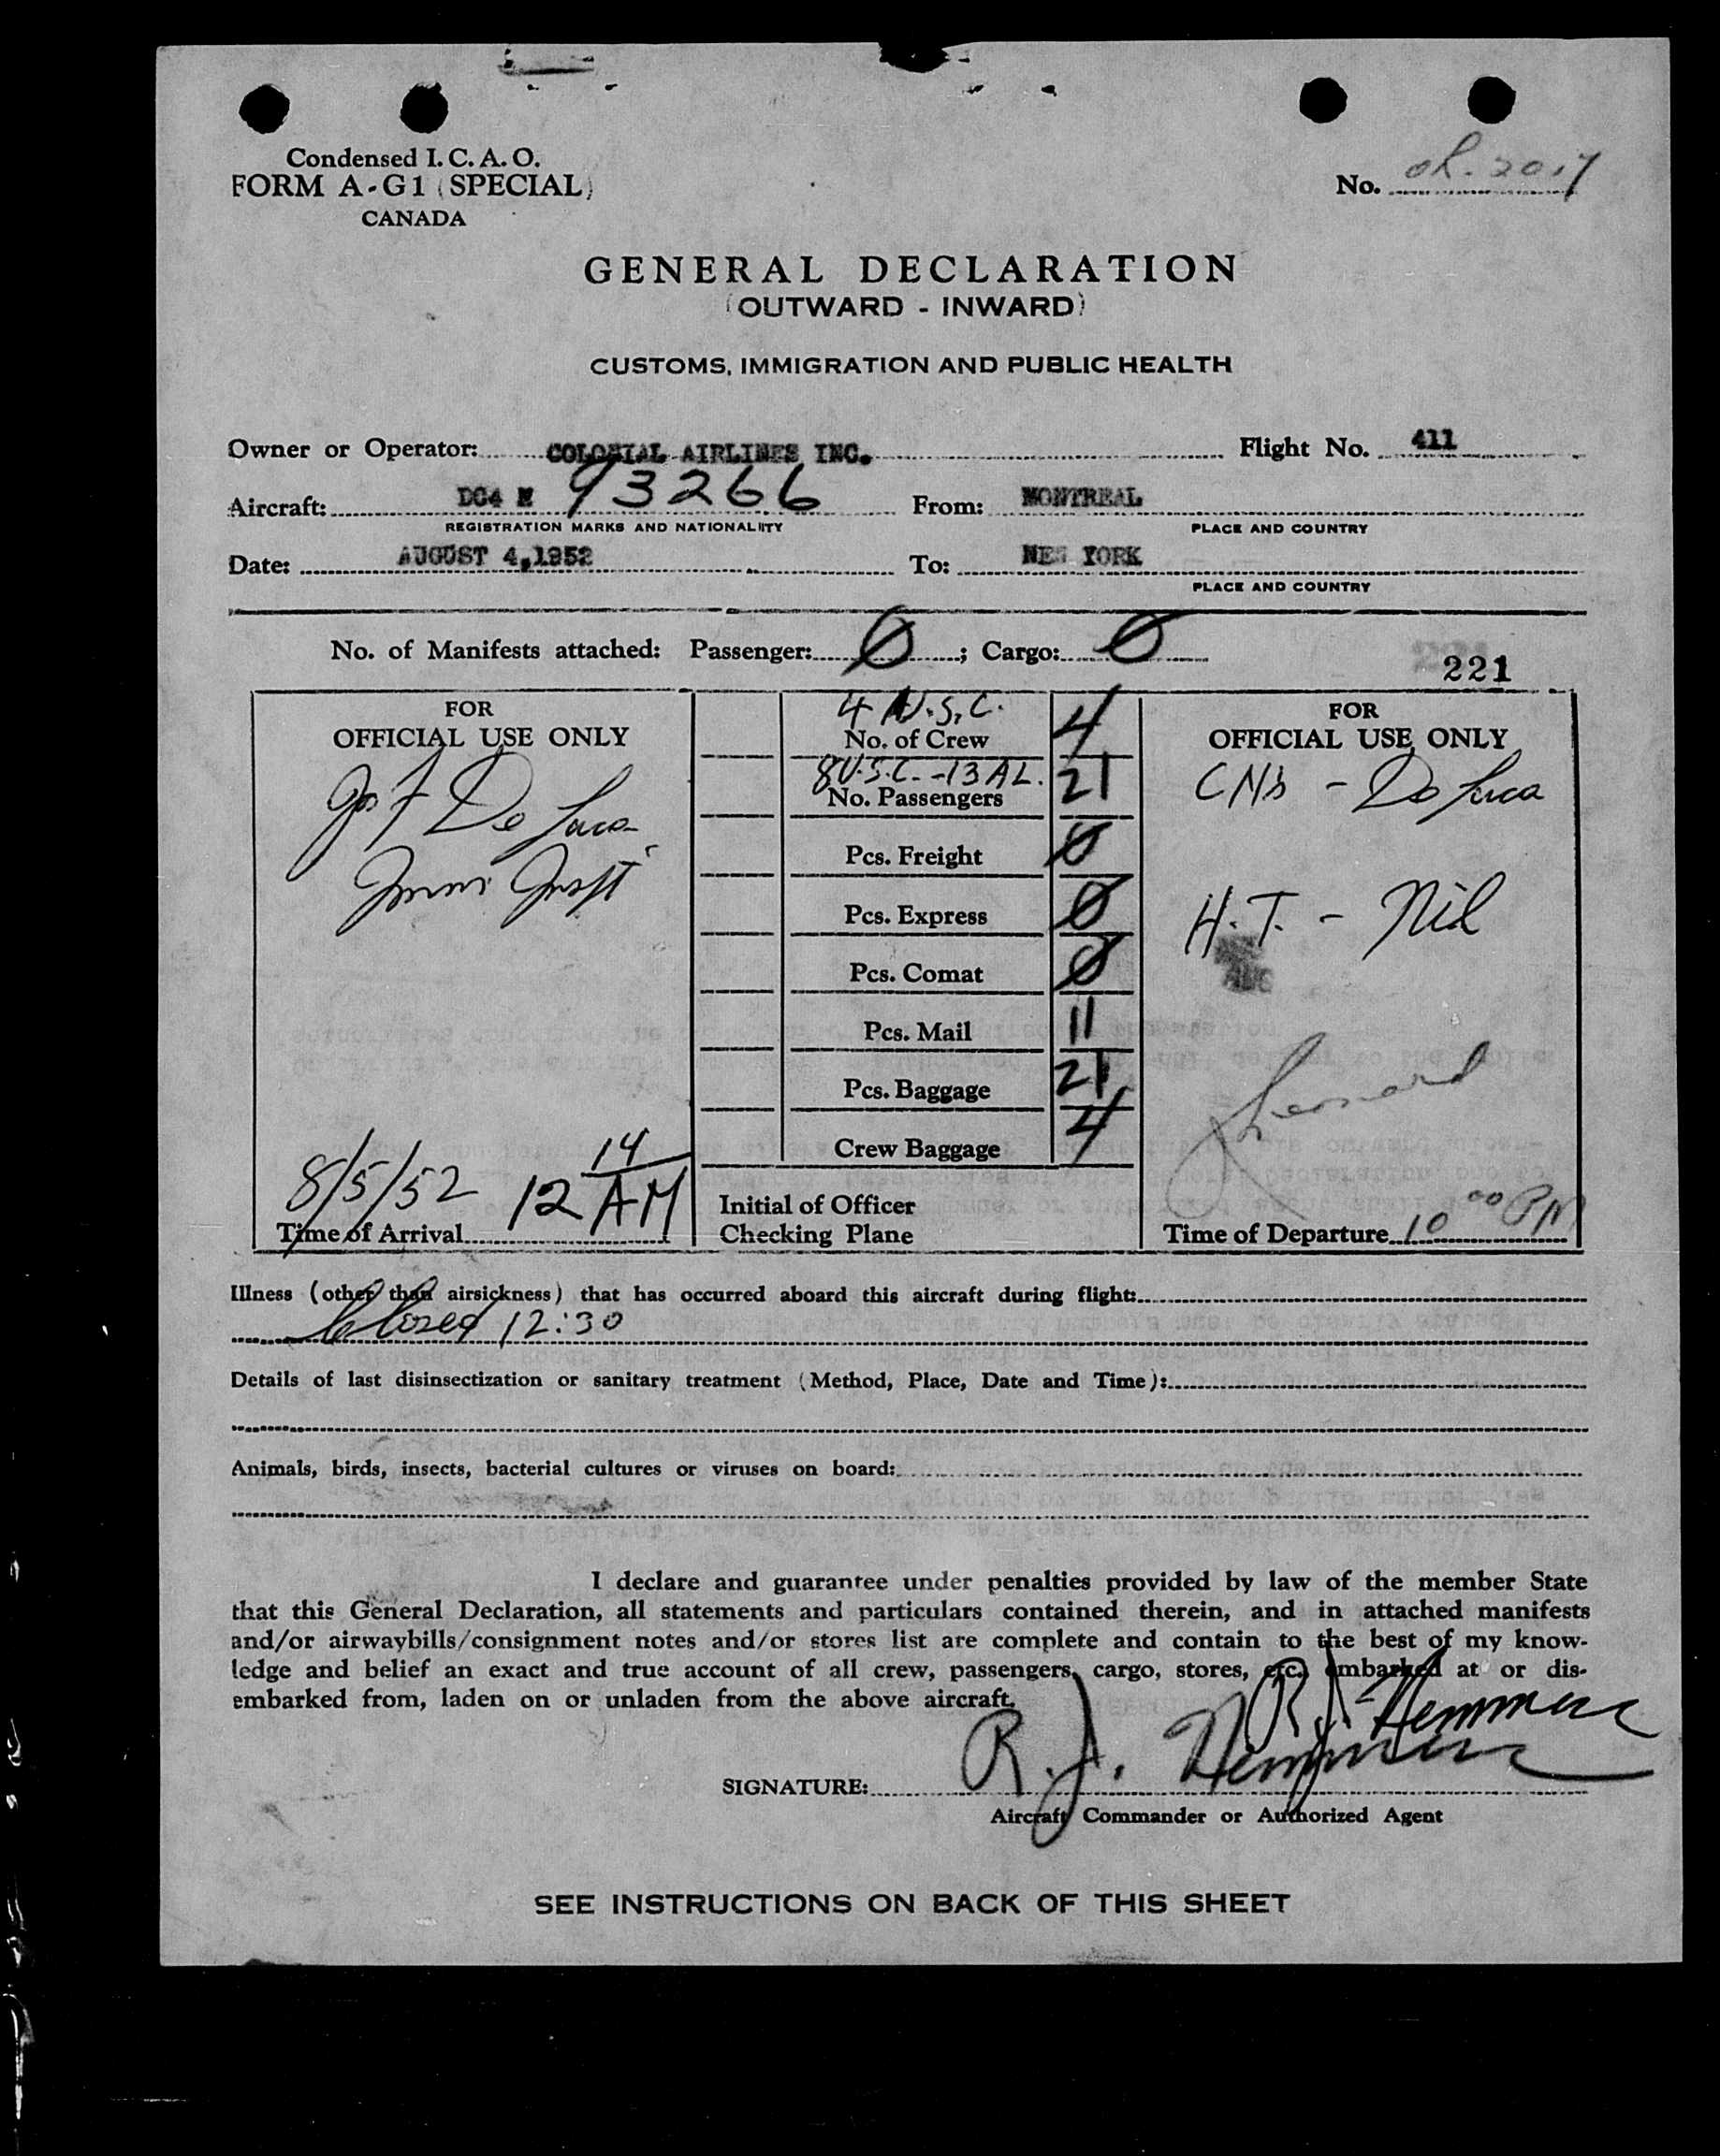 Condensed I. C. A. O.
FORM A-G1 (SPECIAL)
CANADA
No.
GENERAL DECLARATION
(OUTWARD - INWARD)
CUSTOMS, IMMIGRATION AND PUBLIC HEALTH
Owner or Operator: COLONIAL AIRLINES INC. Flight No. 411
Aircraft: DC4 N 93266 From: MONTREAL
REGISTRATION MARKS AND NATIONALITY PLACE AND COUNTRY
Date: AUGUST 4,1952 To: NEW YORK
PLACE AND COUNTRY
No. of Manifests attached: Passenger: 0 ; Cargo: 0
221
FOR
OFFICIAL USE ONLY
Jos F De Luca
Imm Inspt
8/5/52 12 14 AM
Time of Arrival
4 U.S.C.
No. of Crew 4
8 U.S.C. - 13 AL.
No. Passengers 21
Pcs. Freight 0
Pcs. Express 0
Pcs. Comat 0
Pcs. Mail 11
Pcs. Baggage 21
Crew Baggage 4
Initial of Officer
Checking Plane
FOR
OFFICIAL USE ONLY
De Luca
H.T. - Nil
Leonard
Time of Departure 10 00 PM
Illness (other than airsickness) that has occurred aboard this aircraft during flight:
Closed 12:30
Details of last disinsectization or sanitary treatment (Method, Place, Date and Time):
Animals, birds, insects, bacterial cultures or viruses on board:
I declare and guarantee under penalties provided by law of the member State
that this General Declaration, all statements and particulars contained therein, and in attached manifests
and/or airwaybills/consignment notes and/or stores list are complete and contain to the best of my know-
ledge and belief an exact and true account of all crew, passengers, cargo, stores, etc. embarked at or dis-
embarked from, laden on or unladen from the above aircraft.
SIGNATURE: R.J.
Aircraft Commander or Authorized Agent
SEE INSTRUCTIONS ON BACK OF THIS SHEET